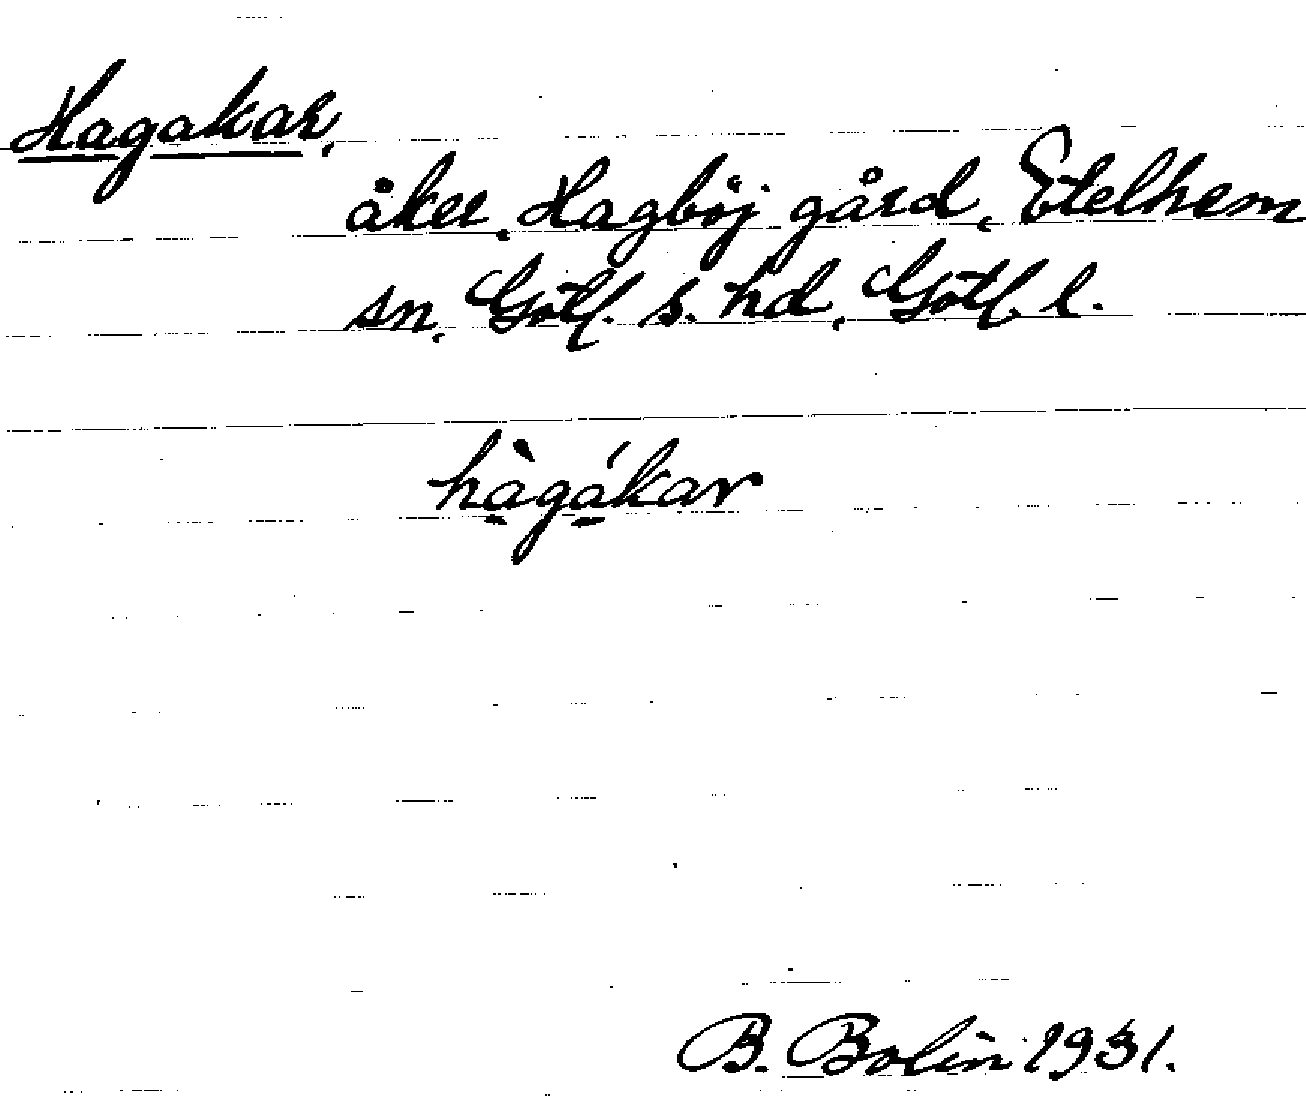 Hagakar,
åker, Hagböj gård, Etelhem
sn, Gotl. s. hd, Gotl. l.
hà̱gá̱kar
B. Bolin 1931.